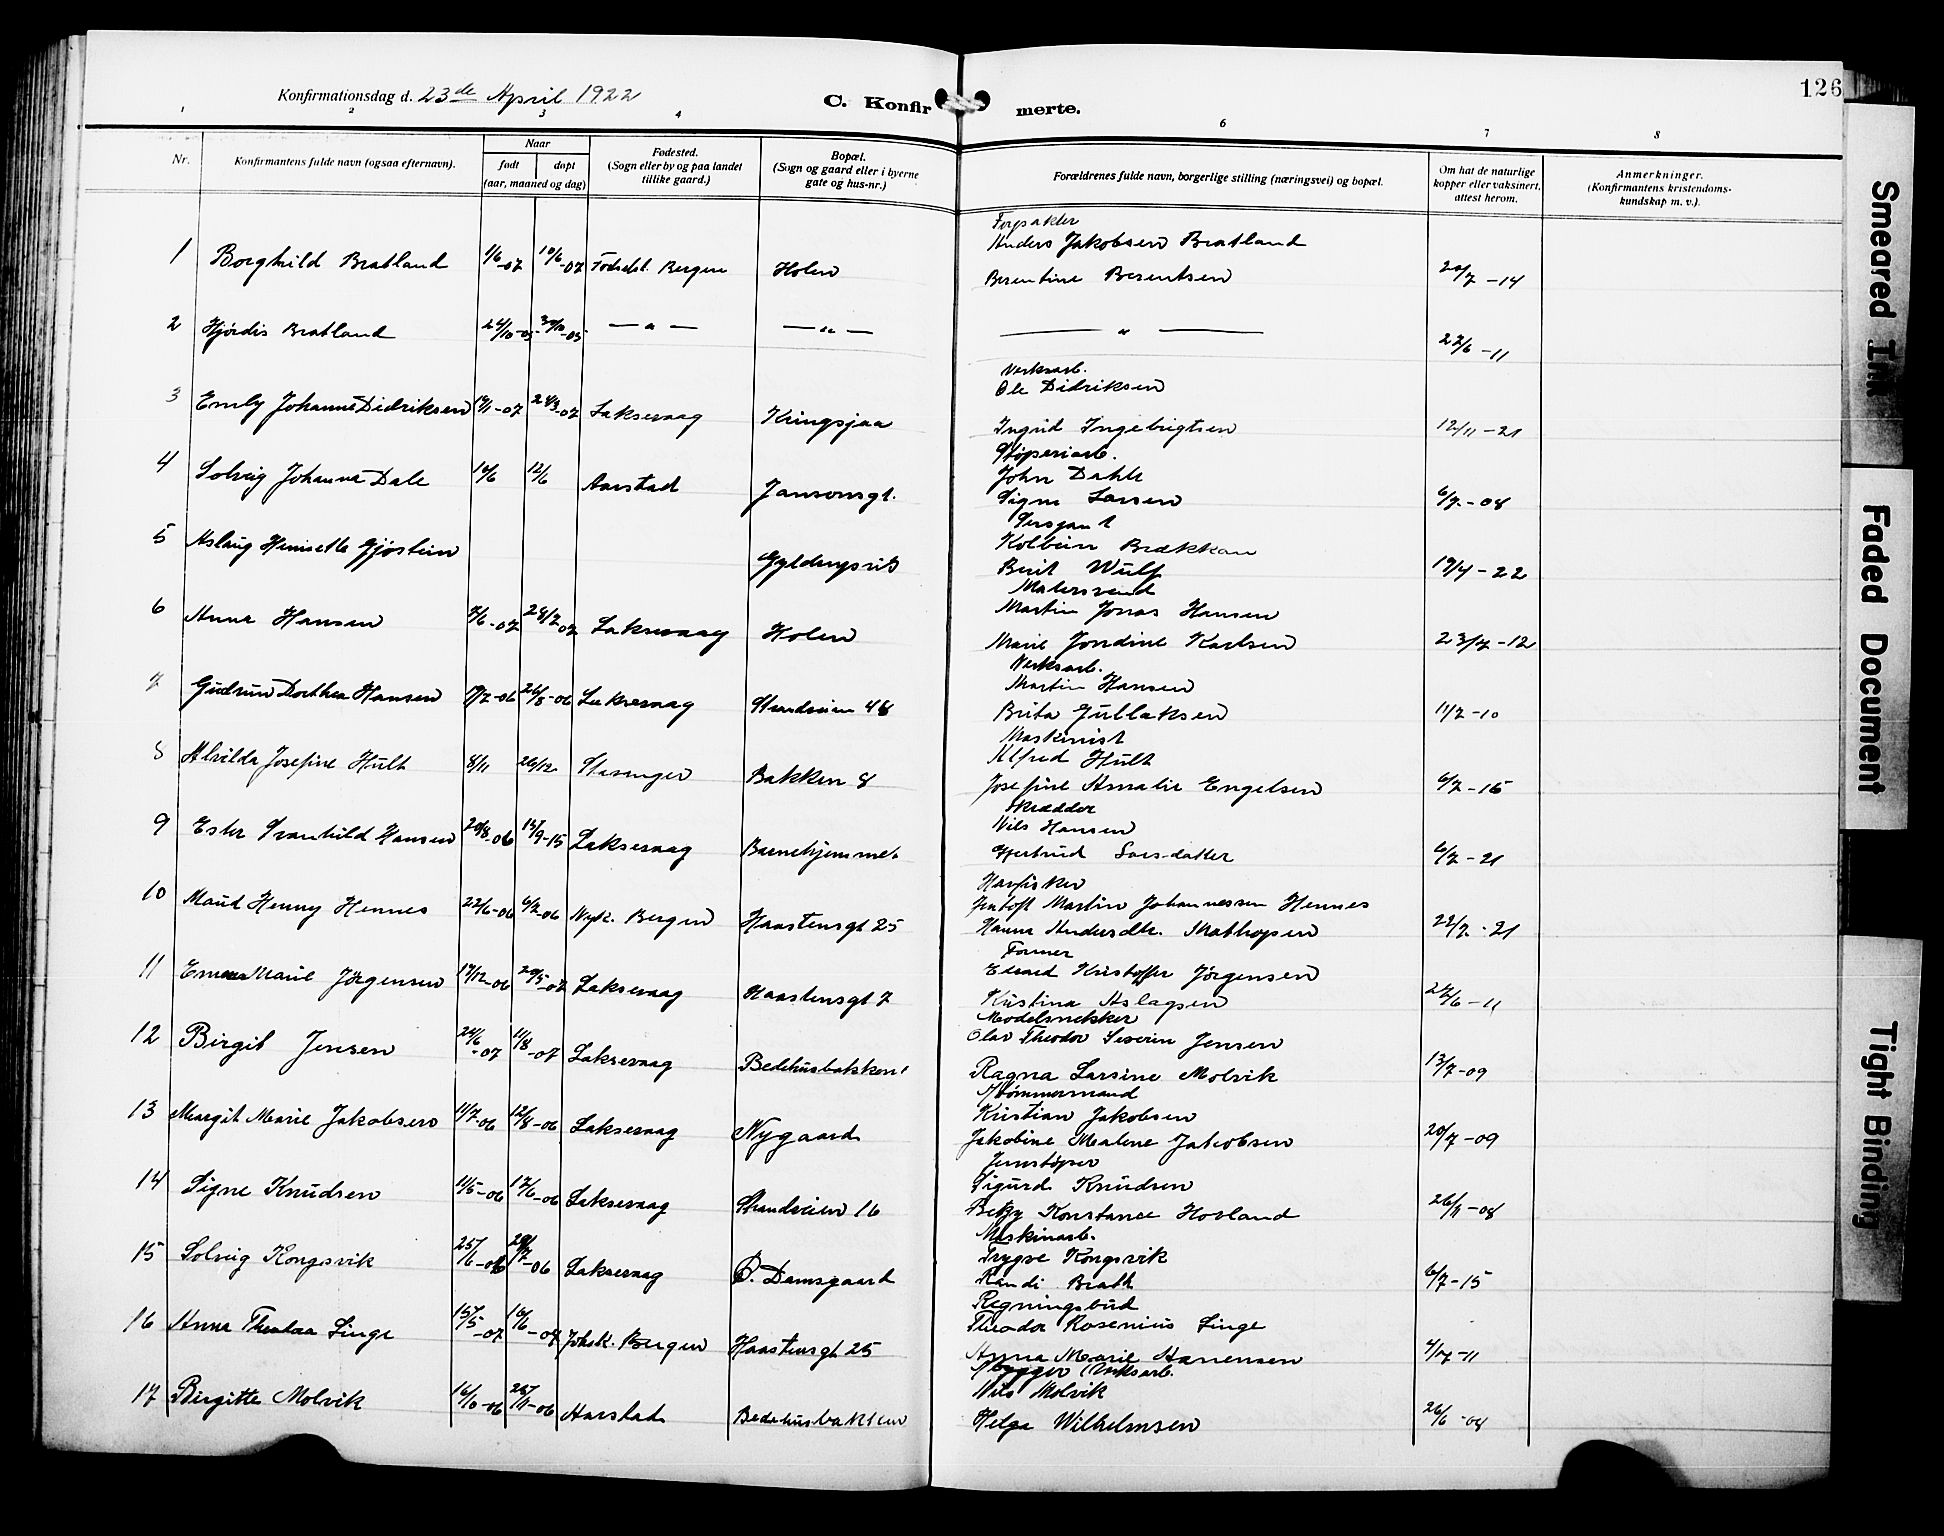 Konfirmationsdag d. 23de April 1922
C. Konfirmerte.
126
1 2 3 4 6 7 8
Nr.
Konfirmantens fulde navn (ogsaa efternavn).
Naar
født
døpt
(aar, maaned og dag)
Fødested.
(Sogn eller by og paa landet
tillike gaard.)
Bopæl.
(Sogn og gaard eller i byerne
gate og hus-nr.)
Forældrenes fulde navn, borgerlige stilling (næringsvei) og bopæl.
Om hat de naturlige
kopper eller vaksinert,
attest herom.
Anmerkninger.
(Konfirmantens kristendoms-
kundskap m. v.).
Forpakter
Anders Jakobsen Bratland
1 Borghild Bratland 1/6-07 10/6-07 Fødselst. Bergen Holen Berentine Berentsen 20/7-14
2 Hjørdis Bratland 24/10-05 30/10-05 — " — — " — — " — 22/6-11
Verksarb.
Ole Didriksen
3 Emly Johanne Didriksen -07 24/3-07 Laksevaag Kringsjaa Ingrid Ingebrigtsen 12/11-21
Støperiarb.
John Dahle
4 Solveig Johanna Dale 10/6 12/6 Aarstad Jansonsgt. Signe Larsen 6/7-08
Sersjant
Kolbein Brækkan
5 Aslaug Henriette Gjøstein Gyldenpris Berit Wulf 19/4-22
Malersvend
Martin Jonas Hansen
6 Anna Hansen 7/6-07 28/7-07 Laksevaag Holen Marie Jondine Karlsen 23/7-12
Verksarb.
Martin Hansen
7 Gudrun Dorthea Hansen 17/7-06 26/8-06 Laksevaag Strandveien 48 Brita Gullaksen 11/7-10
Maskinist
Alfred Hult
8 Alvilda Josefine Hult 8/11 26/12 Stavanger Bakken 8 Josefine Amalie Engelsen 6/7-15
Skrædder
Nils Hansen
9 Ester Svanhild Hansen 20/8-06 15/9-15 Laksevaag Barnehjemmet Gjertrud Larsdatter 6/7-21
Havfisker
Martin Johannessen Hennes
10 Maud Henny Hennes 22/6-06 6/7-06 Nyk. Bergen Haastensgt 25 Hanna Andersdtr. Mathopen 22/7-21
Former
Edvard Kristoffer Jörgensen
11 Emma Marie Jörgensen 17/12-06 20/5-07 Laksevaag Haastensgt 7 Kristina Aslagsen 22/6-11
Modelsnekker
Olav Theodor Severin Jensen
12 Birgit Jensen 24/6-07 11/8-07 Laksevaag Bedehusbakken Ragna Larsine Molvik 13/7-09
Tömmermand
Kristian Jakobsen
13 Margit Marie Jakobsen 11/7-06 12/8-06 Laksevaag Nygaard Jakobine Malene Jakobsen 20/7-09
Jernstøper
Sigurd Knudsen
14 Signe Knudsen 11/5-06 17/6-06 Laksevaag Strandveien 16 Betzy Konstance Hovland 26/11-08
Maskinarb.
Trygve Kongsvik
15 Solveig Kongsvik 25/6-06 29/7-06 Laksevaag Ö. Damsgaard Randi Brath 6/7-15
Regningsbud
Theodor Rosenius Linge
16 Anna Thealaa Linge 15/5-07 16/6-07 Johsk. Bergen Haastensgt 25 Anna Marie Hanensen 4/17-11
(Verksarb.
Nils Molvik
17 Birgitte Molvik 16/10-06 25/11-06 Aarstad Bedehusbakken Helga Wilhelmsen 26/6-08
Smeared Ink
Faded Document
Tight Binding